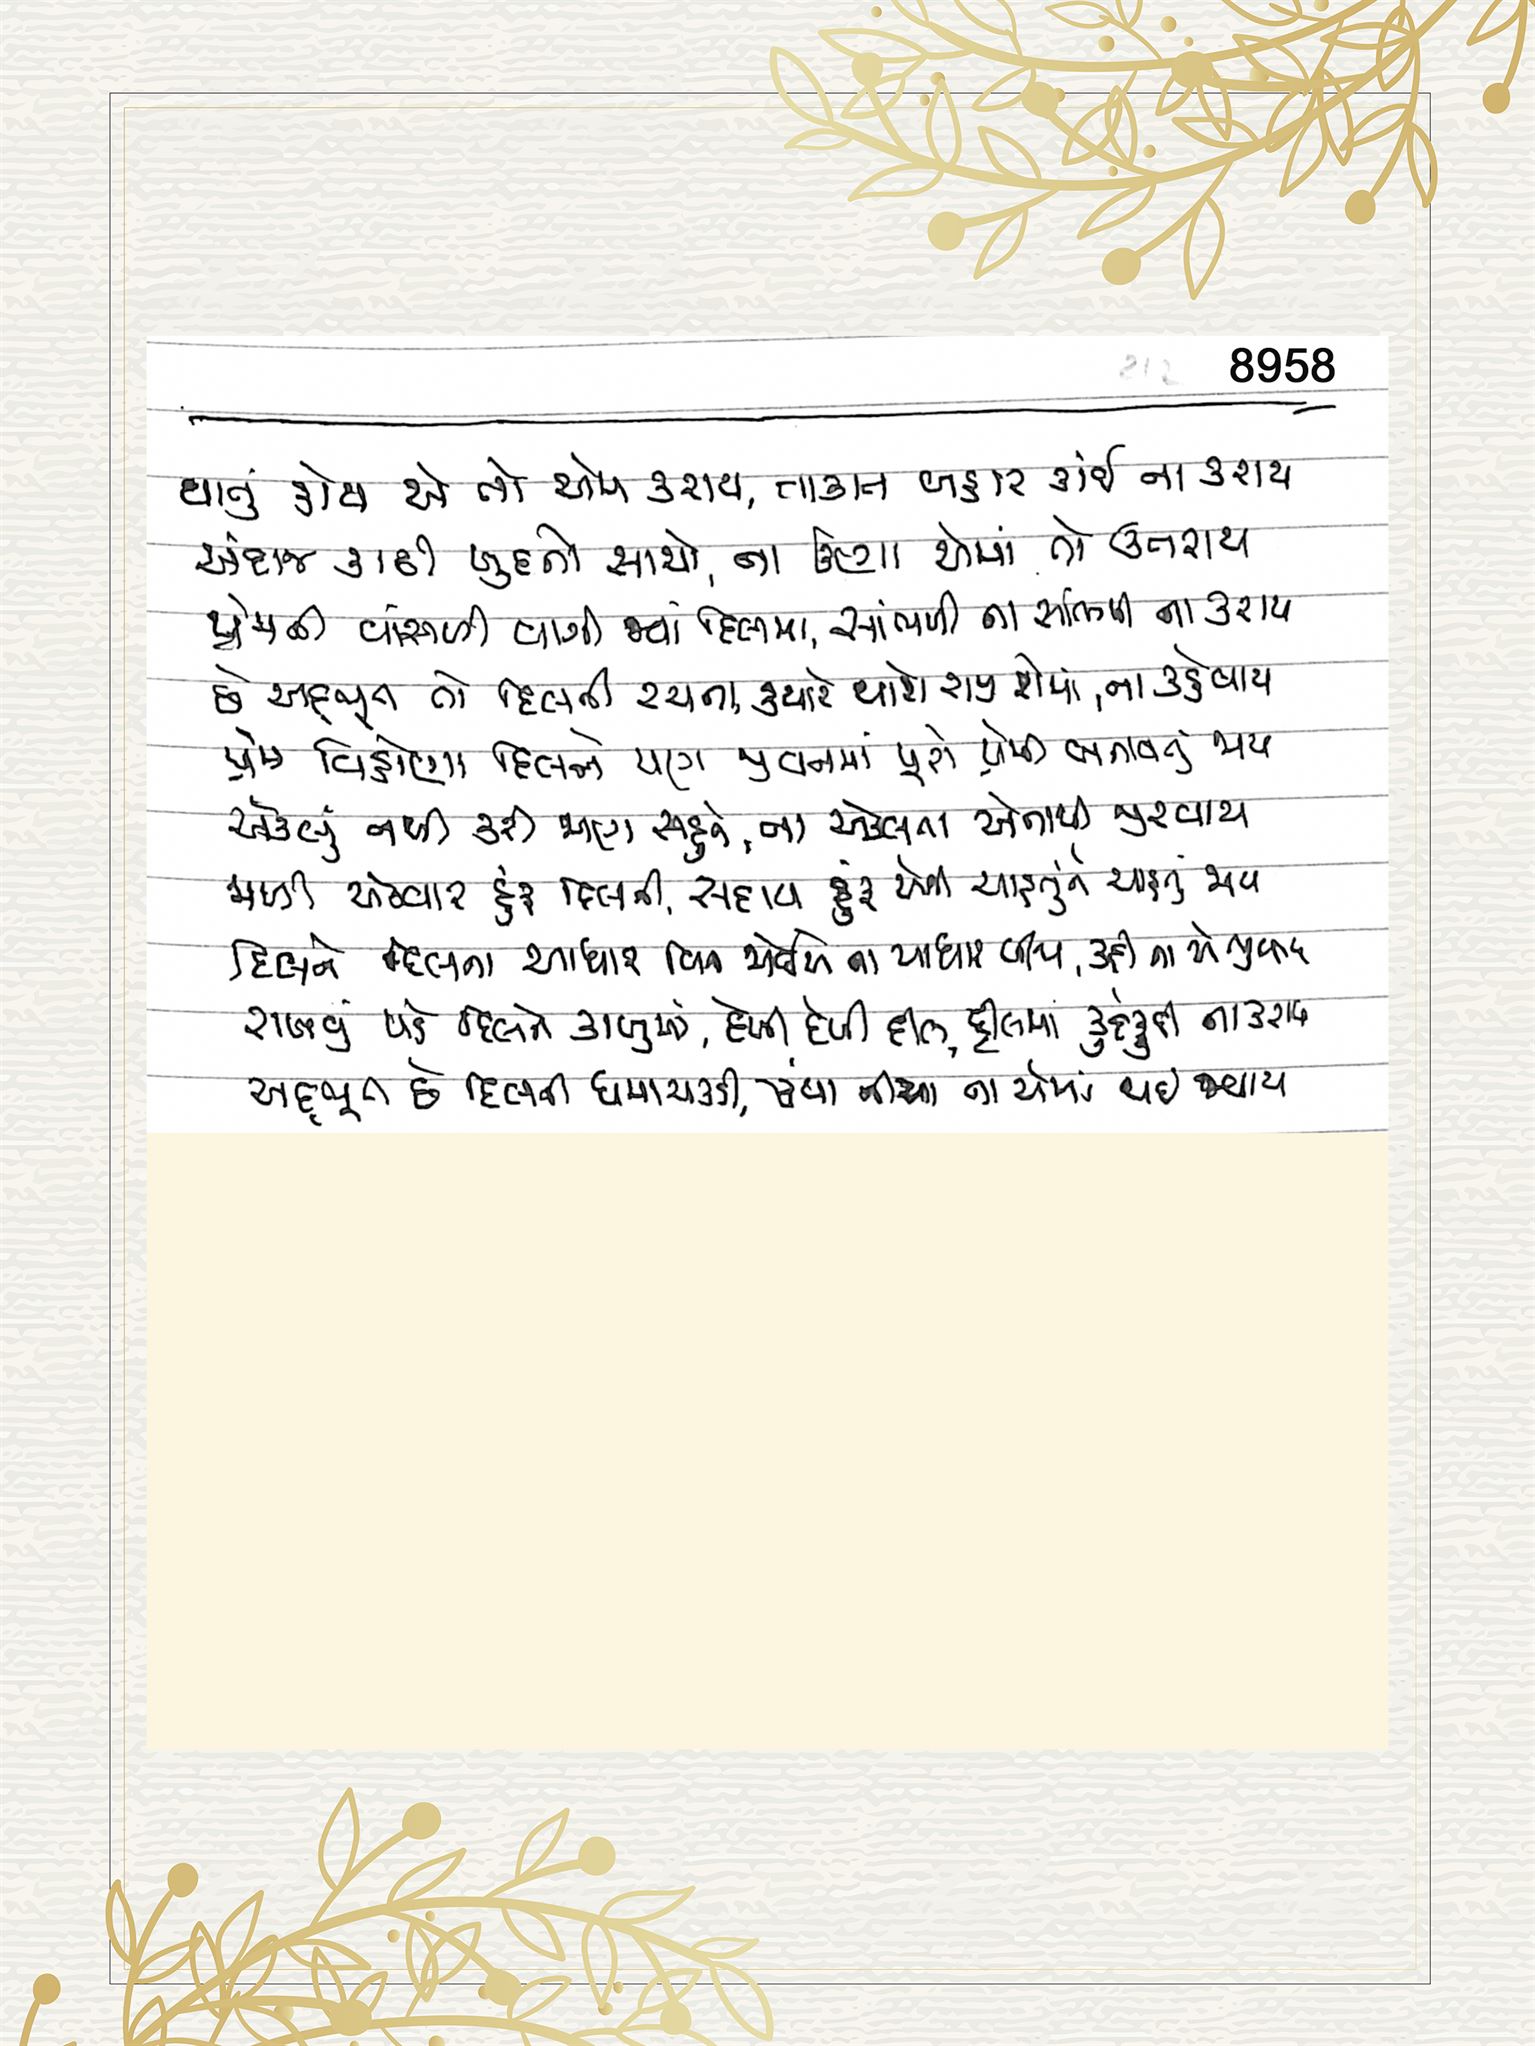 8958
થાવું હોય એ તો એમ કરાય, તાકાત બહાર કાંઈ ના કરાય
અંદાજ કાઢી ખુદનો સાચો, ના ઊણા એમાં તો ઉતરાય
પ્રેમની વાંસળી વાગી જ્યાં દિલમાં, સાંભળી ના સાંભળી ના કરાય
છે અદ્ભૂત તો દિલની રચના, ક્યારે થાશે રાજી શેમાં, ના કહેવાય
પ્રેમ વિહોણા દિલને પણ જીવનમાં પૂરો પ્રેમી બનાવતું જાય
એકલું નથી કરી જાણ સહુને, ના એકલતા એનાથી જીરવાય
મળી એકવાર હુંફ દિલની, સદાય હુંફ એની ચાહતુંને ચાહતું જાય
દિલને દિલના આધાર વિના ના આધાર બીજા, કહી ના એ
રાખવું પડે દિલને કાબુમાં, દેખી દેખી દીલ, દીલમાં કુદંકુદી ના કરાય
અદ્ભૂત છે દિલની ધમાચકડી, ઉંચા નીચા ના એમાં થઈ જવાય